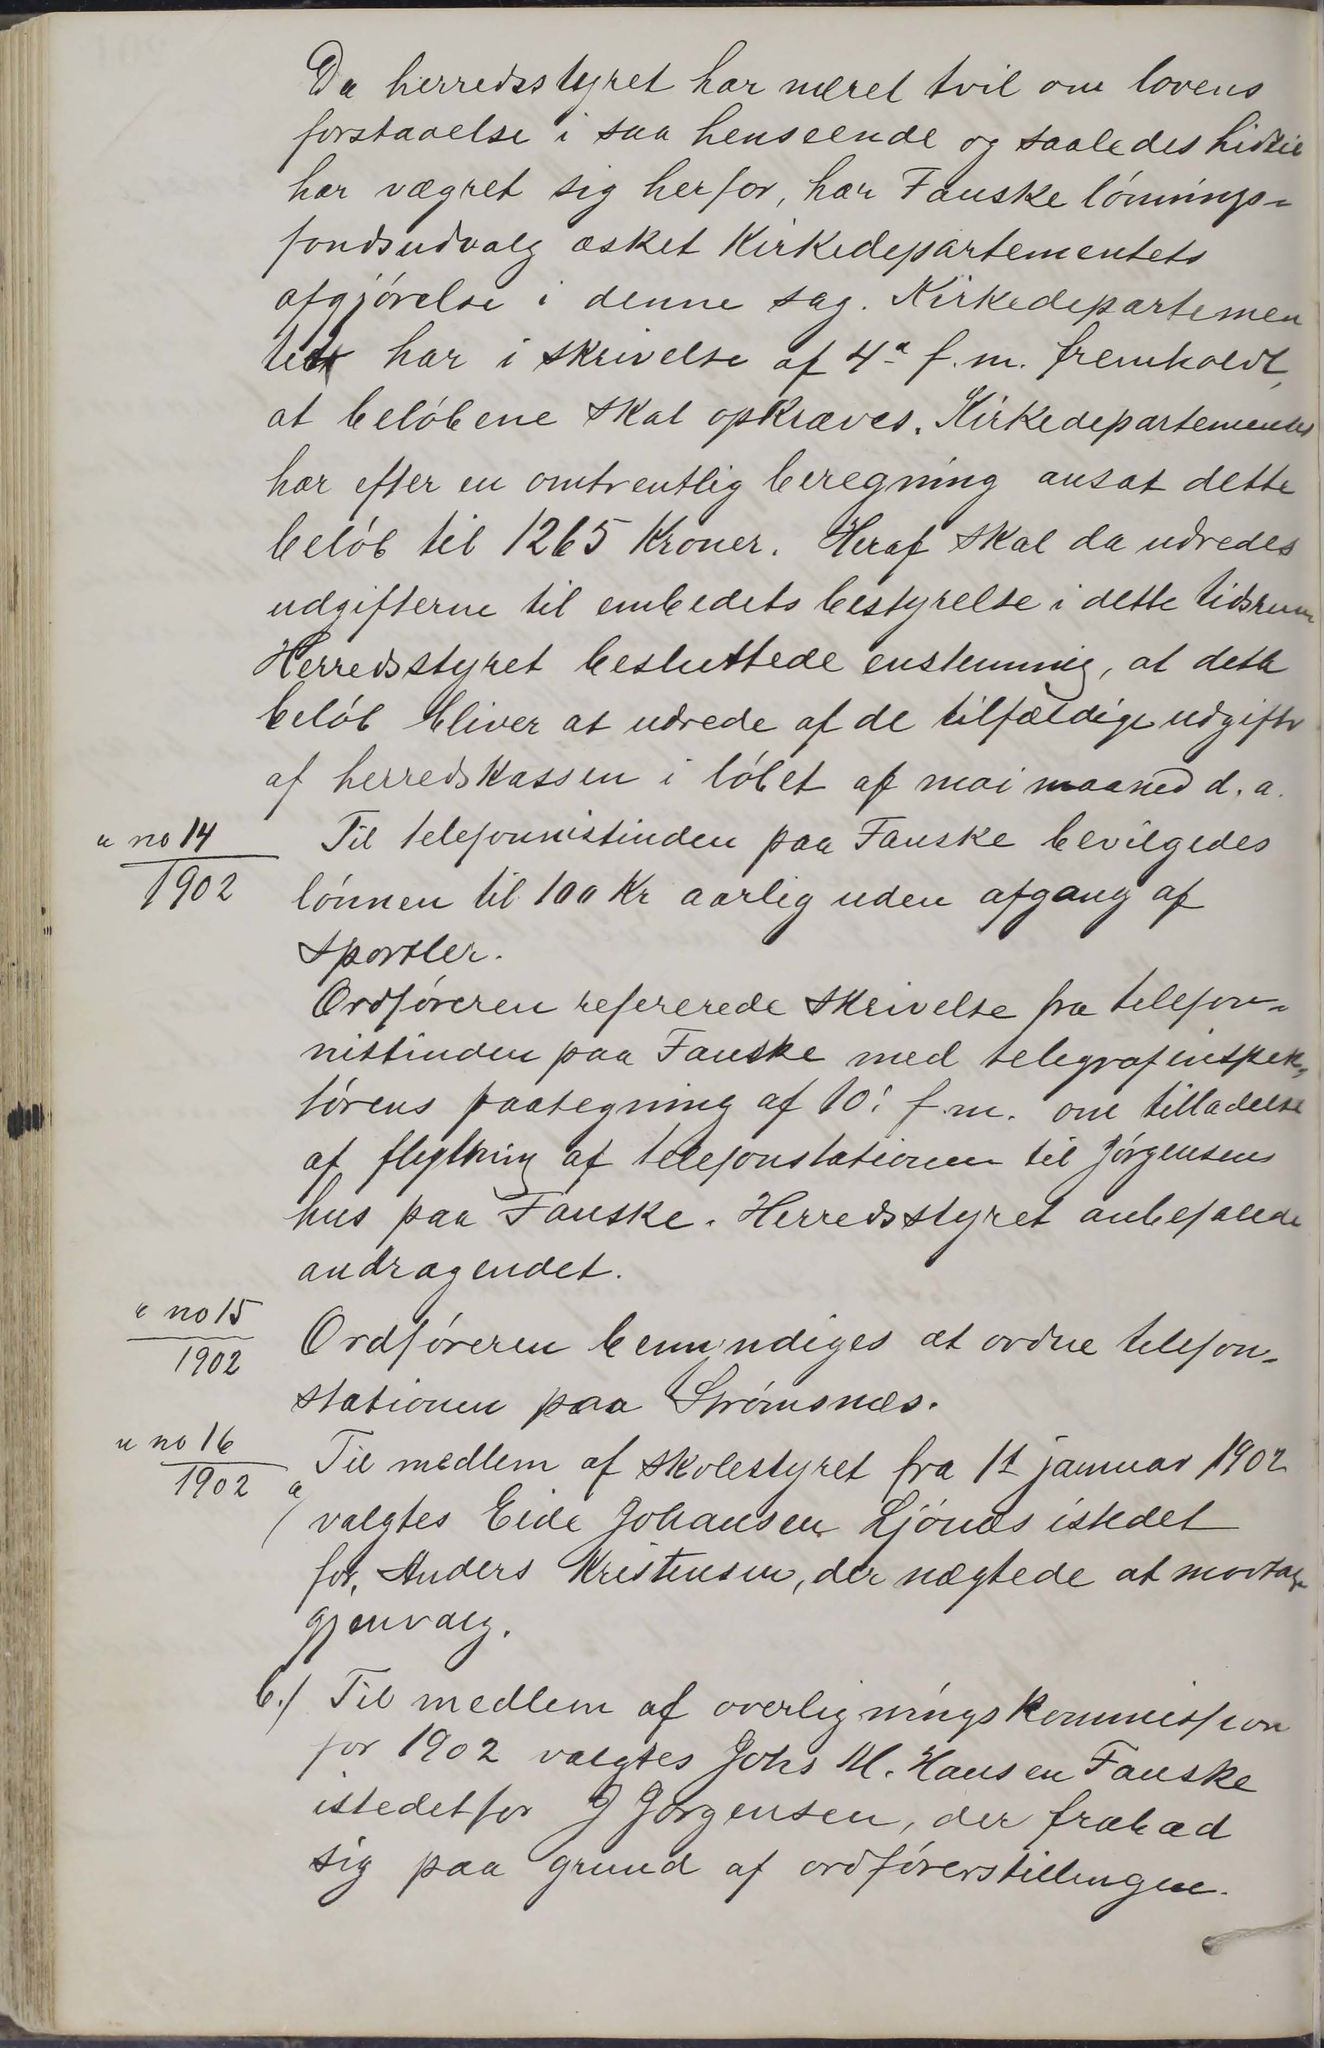 Da herredsstyret har næret tvil om lovens
forstaaelse i saa henseende og saaledes hidtil
har vægret sig herfor, har Fauske lønnings-
fondsudvalg æsket Kirkedepartementets
afgjørelse i denne sag. Kirkedepartemen
tet har i skrivelse af 4de f.m. fremholdt,
at beløbene skal opkræves. Kirkedepartementet
har efter en omtrentlig beregning ansat dette
beløb til 1265 Kroner. Heraf skal da udredes
udgifterne til embedets bestyrelse i dette tidsrum
Herredsstyret besluttede enstemmig, at dette
beløb bliver at udrede af de tilfældige udgifter
af herredskassen i løbet af mai maaned d.a.
" no 14
1902
Til telefonistinden paa Fauske bevilgedes
lønnen til 100 Kr aarlig uden afgang af
sportler.
Ordføreren refererede skrivelse fra telefon-
nistinden paa Fauske med telegrafinspek-
tørens paategning af 10: f.m. om tilladelse
af flytning af telefonstationen til Jørgensens
hus paa Fauske. Herredsstyret anbefalede
andragendet.
" no 15
1902
Ordføreren bemyndiges at ordne telefon-
stationen paa Strømsnæs.
" no 16
1902
a/ Til medlem af skolestyret fra 1ste januar 1902
valgtes Eide Johansen Ljønæs istedet
for, Anders Kristensen, der nægtede at modtage
gjenvalg.
b./ Til medlem af overligningskommission
for 1902 valgtes Johs M. Hansen Fauske
istedetfor J Jørgensen, der frabad
sig paa grund af ordførerstillingen.